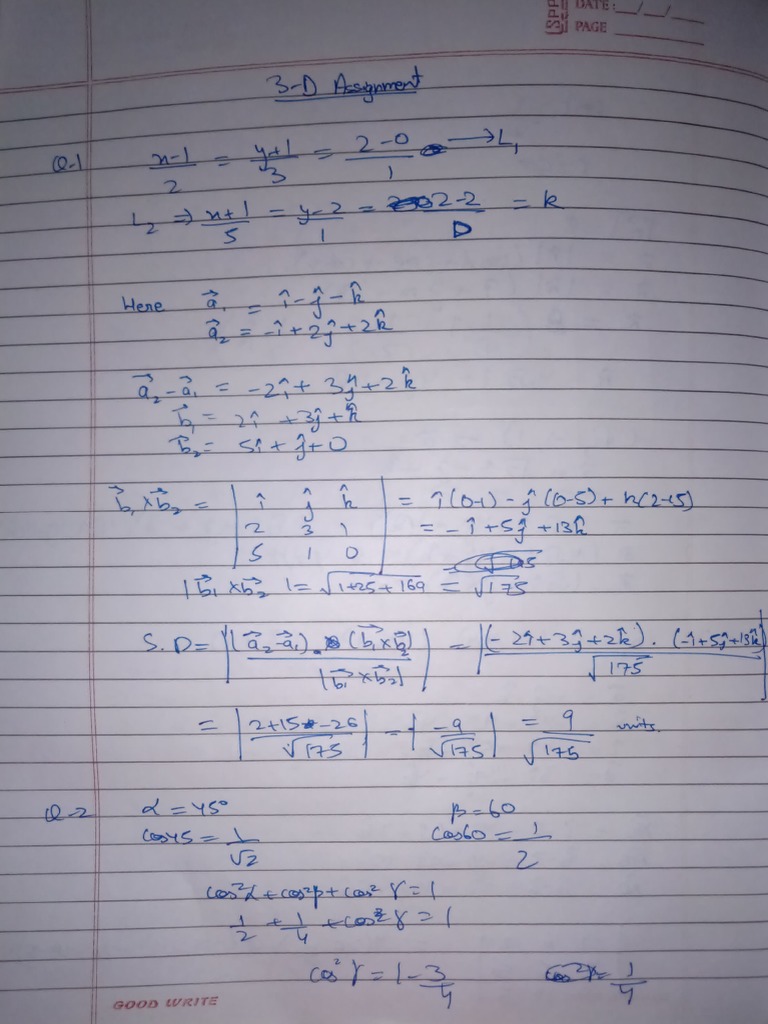 DATE: __/__/__
PAGE
3-D Assignment
Q-1 (x-1)/2 = (y+1)/3 = (z-0)/1 → L₁
L₂ ⇒ (x+1)/5 = (y-2)/1 = (z-2)/0 = k
Here a⃗₁ = î - ĵ - k̂
a⃗₂ = -î + 2ĵ + 2k̂
a⃗₂ - a⃗₁ = -2î + 3ĵ + 2k̂
b⃗₁ = 2î + 3ĵ + k̂
b⃗₂ = 5î + ĵ + 0
b⃗₁ × b⃗₂ = | î ĵ k̂ | = î(0-1) - ĵ(0-5) + k(2-15)
| 2 3 1 | = -î + 5ĵ + 13k̂
| 5 1 0 |
|b⃗₁ × b⃗₂| = √(1+25+169) = √175
S.D = |(a⃗₂ - a⃗₁) . (b⃗₁ × b⃗₂) / |b⃗₁ × b⃗₂|| = |(-2î + 3ĵ + 2k̂) . (-î + 5ĵ + 13k̂) / √175|
= |(2+15-26)/√175| = |-9/√175| = 9/√175 units.
Q-2 α = 45° β = 60
cos45 = 1/√2 cos60 = 1/2
cos²α + cos²β + cos²γ = 1
1/2 + 1/4 + cos²γ = 1
cos²γ = 1 - 3/4 cos²γ = 1/4
GOOD WRITE